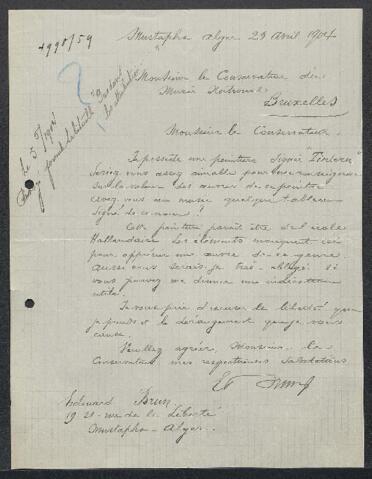 Mustapha Alger 29 Avril 1904
Monsieur le Conservateur des
Musée
Bruxelles
Monsieur le Conservateur.
Je possède une peinture signée
Seriez vous assez aimable pour me renseigner
sur la valeur des œuvres de ce peintre
avez vous au musée quelque tableau
signé de ce nom?
Cette peinture paraît être de l'école
Hollandaise les éléments manquent ici
pour apprécier une œuvre de ce genre.
aussi vous serais-je très obligé si
vous pouvez me donner une indication
utile.
Je vous prie d'excuser la liberté que
je prends et le dérangement que je vous
cause.
Veuillez agréer, Monsieur le
Conservateur, mes respectueuses salutations
Edouard Brun
19-21 rue de la Liberté
Mustapha - Alger.
Le 5 5/1904